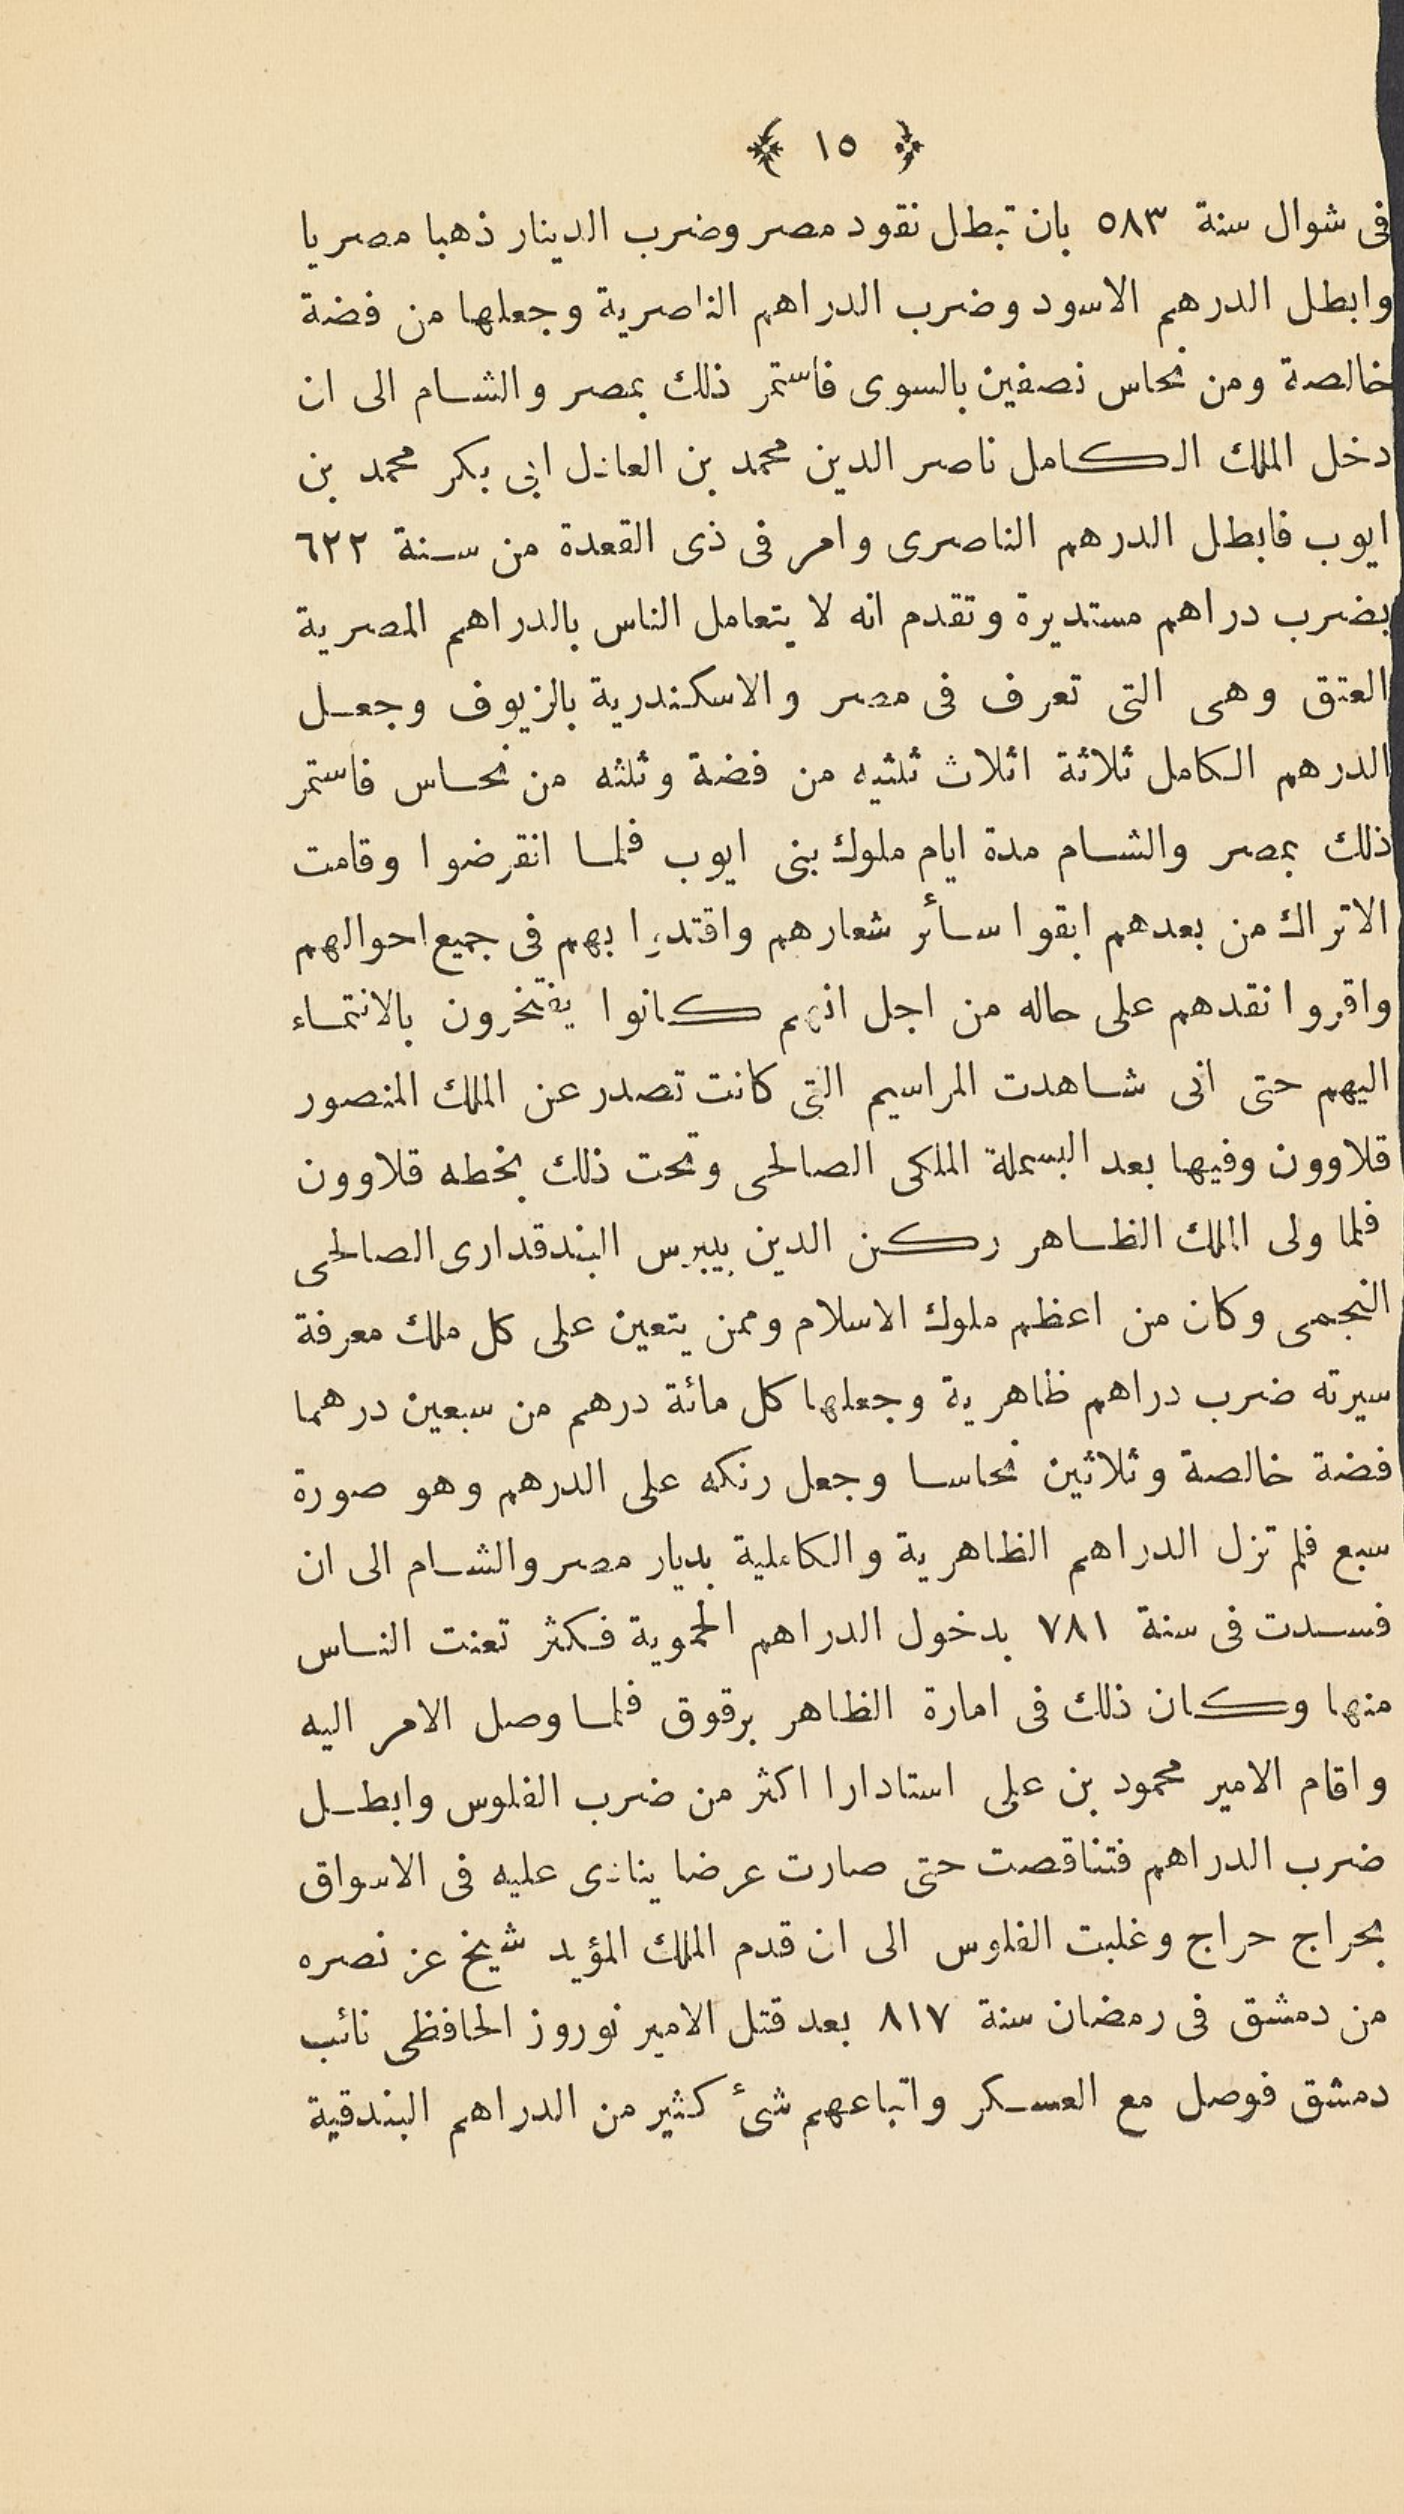 ﴿ ١٥ ﴾
فى شوال سنة ٥٨٣ بان تبطل نقود مصر وضرب الدينار ذهبا مصريا
وابطل الدرهم الاسود وضرب الدراهم الناصرية وجعلها من فضة
خالصة ومن نحاس نصفين بالسوى فاستمر ذلك بمصر والشام الى ان
دخل الملك الكامل ناصر الدين محمد بن العادل ابى بكر محمد بن
ايوب فابطل الدرهم الناصرى وامر فى ذى القعدة من سنة ٦٢٢
بضرب دراهم مستديرة وتقدم انه لا يتعامل الناس بالدراهم المصرية
العتق وهى التى تعرف فى مصر والاسكندرية بالزيوف وجعل
الدرهم الكامل ثلاثة اثلاث ثلثيه من فضة وثلثه من نحاس فاستمر
ذلك بمصر والشام مدة ايام ملوك بنى ايوب فلما انقرضوا وقامت
الاتراك من بعدهم ابقوا سأئر شعارهم واقتدوا بهم فى جميع احوالهم
واقروا نقدهم على حاله من اجل انهم كانوا يفتخرون بالانتماء
اليهم حتى انى شاهدت المراسيم التى كانت تصدر عن الملك المنصور
قلاوون وفيها بعد البسملة الملكى الصالحى وتحت ذلك بخطه قلاوون
فلما ولى الملك الظاهر ركن الدين بيبرس البندقدارى الصالحى
النجمى وكان من اعظم ملوك الاسلام وممن يتعين على كل ملك معرفة
سيرته ضرب دراهم ظاهرية وجعلها كل مائة درهم من سبعين درهما
فضة خالصة وثلاثين نحاسا وجعل رنكه على الدرهم وهو صورة
سبع فلم تزل الدراهم الظاهرية والكاملية بديار مصر والشام الى ان
فسدت فى سنة ٧٨١ بدخول الدراهم الحموية فكثر تعنت الناس
منها وكان ذلك فى امارة الظاهر برقوق فلما وصل الامر اليه
واقام الامير محمود بن على استادارا اكثر من ضرب الفلوس وابطل
ضرب الدراهم فتناقصت حتى صارت عرضا ينادى عليه فى الاسواق
بحراج حراج وغلبت الفلوس الى ان قدم الملك المؤيد شيخ عز نصره
من دمشق فى رمضان سنة ٨١٧ بعد قتل الامير نوروز الحافظى نائب
دمشق فوصل مع العسكر واتباعهم شئ كثير من الدراهم البندقية